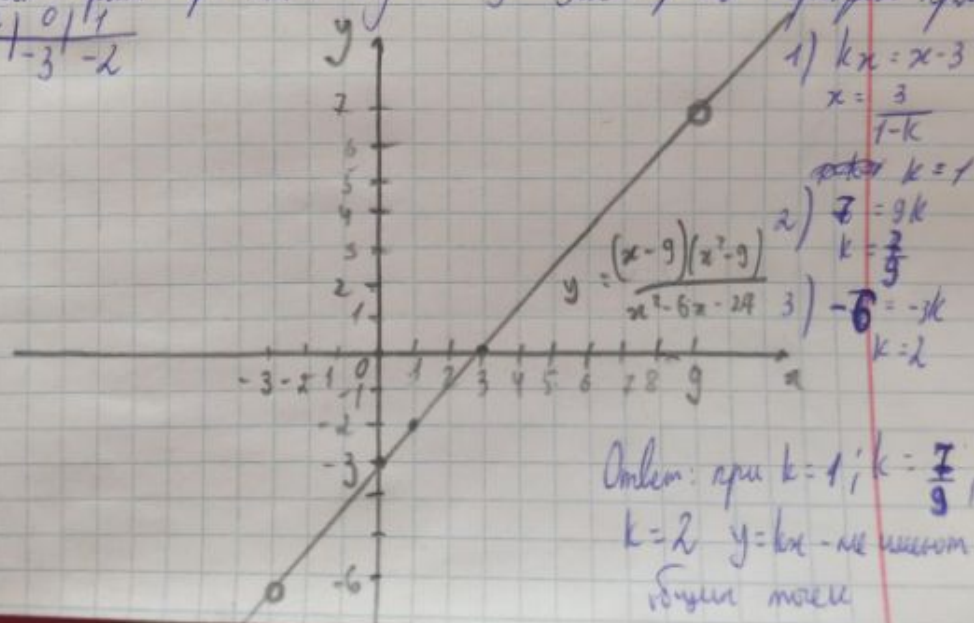 0 | 1
-3 | -2
y
7
6
5
4
3
2
1
-3 -2 -1 0 1 2 3 4 5 6 7 8 9 x
-1
-2
-3
-6
y = (x-9)(x²-9) / x²-6x-27
1) kx = x-3
x = 3/1-k
k = 1
2) 7 = 9k
k = 7/9
3) -6 = -3k
k = 2
Ответ: при k = 1; k = 7/9;
k = 2 y = kx - не имеют
общих точек